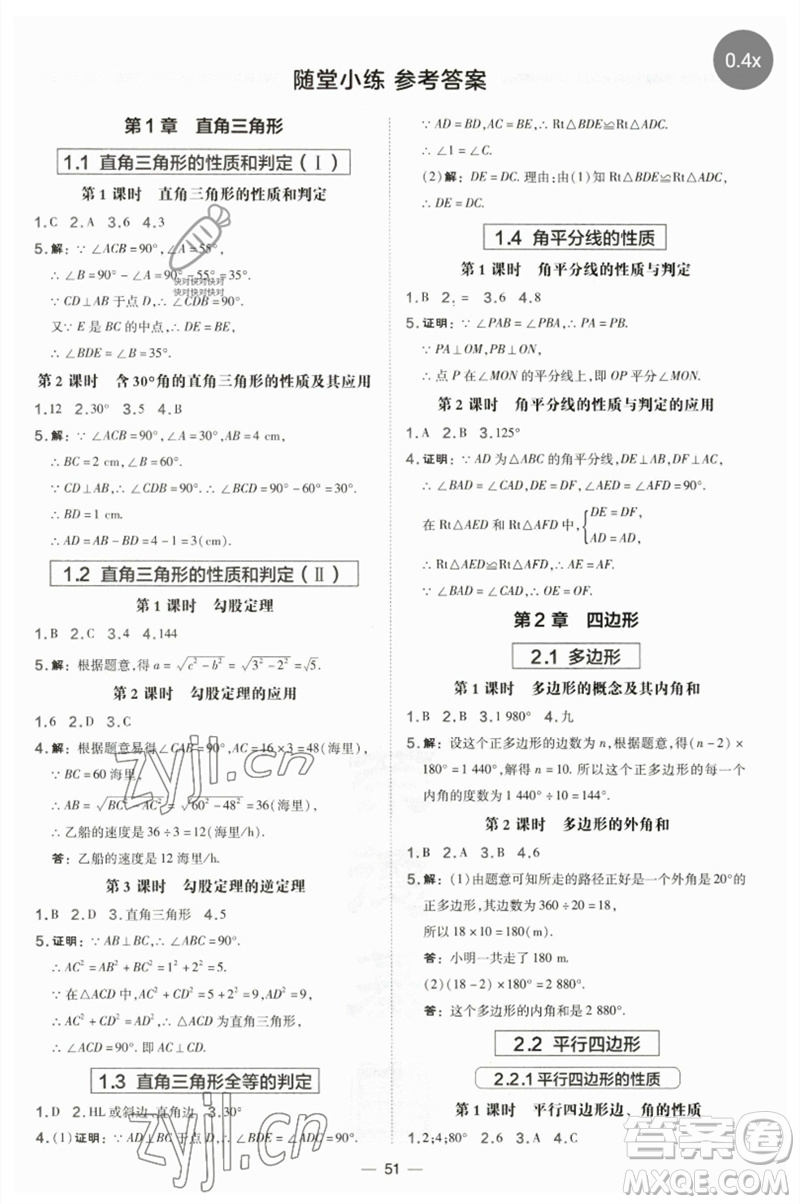 0.4x
随堂小练 参考答案
第1章 直角三角形
1.1 直角三角形的性质和判定(Ⅰ)
第1课时 直角三角形的性质和判定
1.C 2.A 3.6 4.3
5.解:∵∠ACB=90°,∠A=55°,
∴∠B=90°-∠A=90°-55°=35°.
∵CD⊥AB于点D,∴∠CDB=90°.
又∵E是BC的中点,∴DE=BE.
∴∠BDE=∠B=35°.
快对快对快对
快对快对快对
第2课时 含30°角的直角三角形的性质及其应用
1.12 2.30° 3.5 4.B
5.解:∵∠ACB=90°,∠A=30°,AB=4 cm,
∴BC=2 cm,∠B=60°.
∵CD⊥AB,∴∠CDB=90°.∴∠BCD=30°.
∴BD=1 cm.
∴AD=AB-BD=4-1=3(cm).
1.2 直角三角形的性质和判定(Ⅱ)
第1课时 勾股定理
1.B 2.C 3.4 4.144
5.解:根据题意,得a=√(c²-b²)=√(3²-2²)=√5.
第2课时 勾股定理的应用
1.6 2.D 3.C
4.解:根据题意易得∠CAB=90°,AC=16×3=48(海里),
BC=60海里,
∴AB=√(BC²-AC²)=√(60²-48²)=36(海里).
∴乙船的速度是36÷3=12(海里/h).
答:乙船的速度是12海里/h.
第3课时 勾股定理的逆定理
1.B 2.D 3.直角三角形 4.5
5.证明:∵AB⊥BC,∴∠ABC=90°.
∴AC²=AB²+BC²=1²+2²=5.
∵在△ACD中,AC²+CD²=5+2²=9,AD²=9,
∴AC²+CD²=AD².∴△ACD为直角三角形,
∴∠ACD=90°.即AC⊥CD.
1.3 直角三角形全等的判定
1.D 2.HL或斜边、直角边 3.30°
4.(1)证明:∵AD⊥BC,∴∠BDE=∠ADC=90°.
∵AD=BD,AC=BE,∴Rt△BDE≌Rt△ADC.
∴∠1=∠C.
(2)解:DE=DC.理由:由(1)知Rt△BDE≌Rt△ADC,
∴DE=DC.
1.4 角平分线的性质
第1课时 角平分线的性质与判定
1.B 2.= 3.6 4.8
5.证明:∵∠PAB=∠PBA,∴PA=PB.
∵PA⊥OM,PB⊥ON,
∴点P在∠MON的平分线上,即OP平分∠MON.
第2课时 角平分线的性质与判定的应用
1.A 2.B 3.125°
4.证明:∵AD为△ABC的角平分线,DE⊥AB,DF⊥AC,
∴∠BAD=∠CAD,DE=DF,∠AED=∠AFD=90°.
在Rt△AED和Rt△AFD中,{DE=DF,
AD=AD,
∴Rt△AED≌Rt△AFD,∴AE=AF.
∵∠BAD=∠CAD,AO=AO,
∴△AEO≌△AFO,∴OE=OF.
第2章 四边形
2.1 多边形
第1课时 多边形的概念及其内角和
1.B 2.B 3.1 980° 4.九
5.解:设这个正多边形的边数为n,根据题意,得(n-2)×
180°=1 440°,解得n=10.所以这个正多边形的一个
内角为1 440°÷10=144°.
第2课时 多边形的外角和
1.B 2.A 3.B 4.6
5.解:(1)由题意可知所走的路径正好一个外角是20°的正
多边形,其边数为360÷20=18,
所以18×10=180(m).
答:小明一共走了180 m.
(2)(18-2)×180°=2 880°,
答:这个多边形的内角和是2 880°.
2.2 平行四边形
2.2.1平行四边形的性质
第1课时 平行四边形边、角的性质
1.2;4;80° 2.6 3.A 4.D
51
zyjl.cn
zyjl.cn
答案圈
MXQE.COM